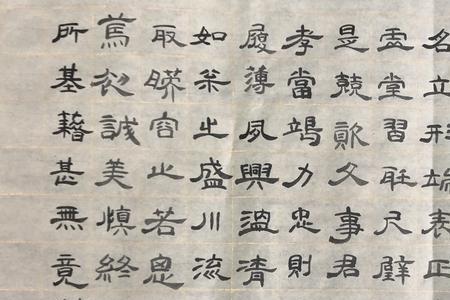 名立形端表正
虛堂習聽尺璧
是競資父事君
孝當竭力忠則
履薄夙興溫清
如松之盛川流
取暎容止若思
篤初誠美慎終
所基籍甚無竟